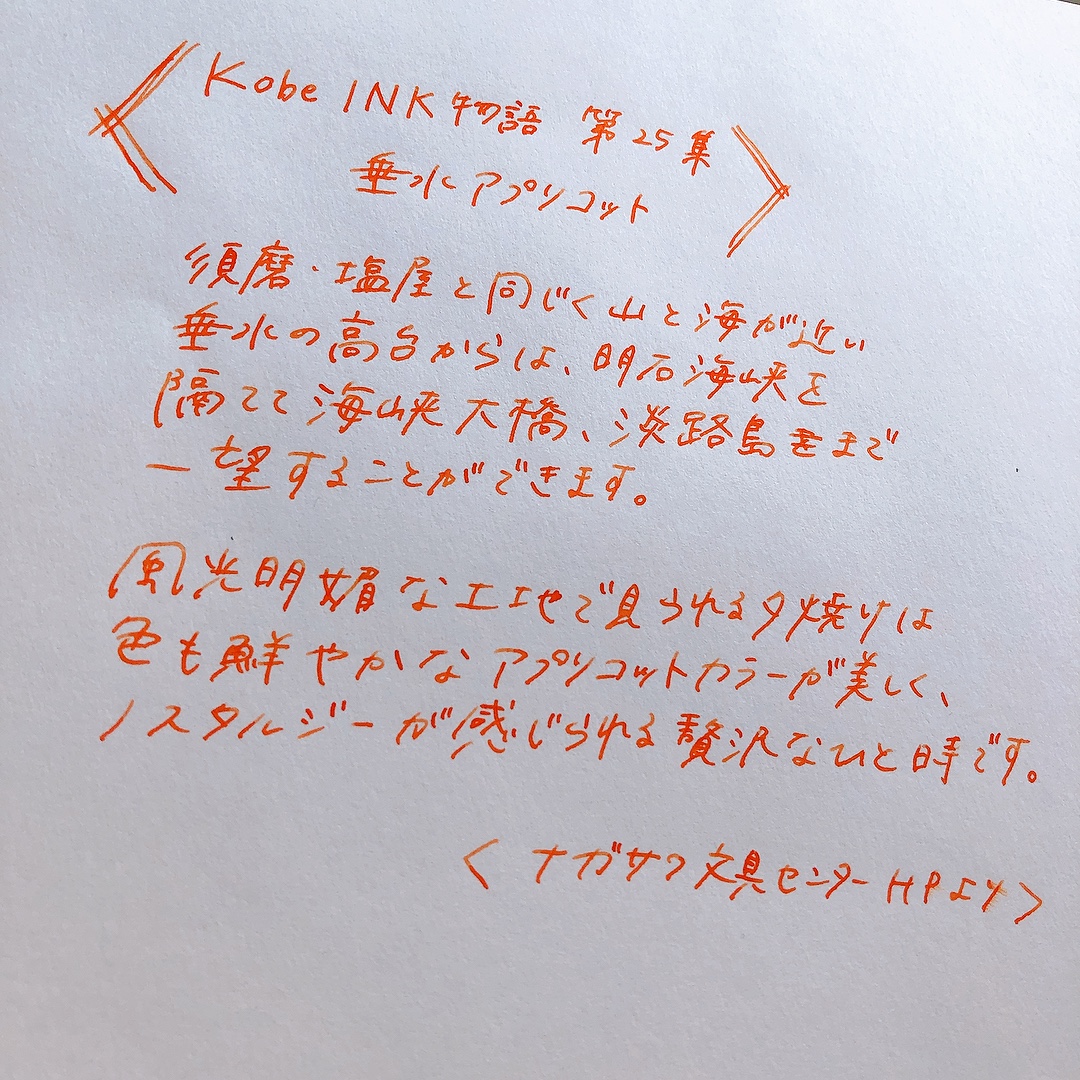 〈Kobe INK物語 第25集
垂水アプリコット〉
須磨・塩屋と同じく山と海が近い
垂水の高台からは、明石海峡を
隔てて海峡大橋、淡路島まで
一望することができます。
風光明媚な土地で見られる夕焼けは
色も鮮やかなアプリコットカラーが美しく、
ノスタルジーが感じられる贅沢なひと時です。
<ナガサワ文具センターHPより>